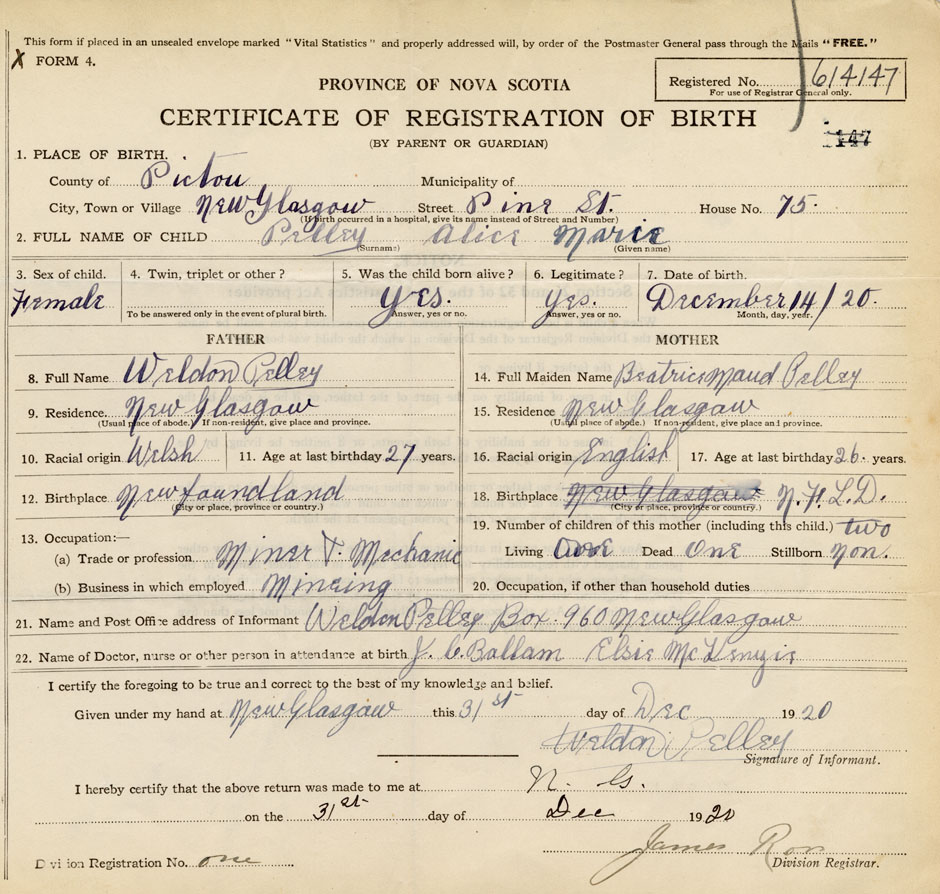 This form if placed in an unsealed envelope marked "Vital Statistics" and properly addressed will, by order of the Postmaster General pass through the Mails "FREE."
X FORM 4.
Registered No. 614147
For use of Registrar General only.
PROVINCE OF NOVA SCOTIA
CERTIFICATE OF REGISTRATION OF BIRTH
147
(BY PARENT OR GUARDIAN)
1. PLACE OF BIRTH.
County of Pictou Municipality of
City, Town or Village New Glasgow Street Pine St. House No. 75.
(If birth occurred in a hospital, give its name instead of Street and Number)
2. FULL NAME OF CHILD Pelley Alice Marie
(Surname) (Given name)
3. Sex of child. 4. Twin, triplet or other? 5. Was the child born alive? 6. Legitimate? 7. Date of birth.
Female Yes. Yes. December 14/20.
To be answered only in the event of plural birth. Answer, yes or no. Answer, yes or no. Month, day, year.
FATHER MOTHER
8. Full Name Weldon Pelley 14. Full Maiden Name Beatrice Maud Pelley
9. Residence. New Glasgow 15. Residence New Glasgow
(Usual place of abode.) If non-resident, give place and province. (Usual place of abode.) If non-resident, give place and province.
10. Racial origin Welsh 11. Age at last birthday 27 years. 16. Racial origin English 17. Age at last birthday 26. years.
12. Birthplace Newfoundland 18. Birthplace New Glasgow N.F.L.D.
(City or place, province or country.) (City or place, province or country.)
13. Occupation:— 19. Number of children of this mother (including this child.) two
(a) Trade or profession Miner & Mechanic Living Dead One Stillborn Non.
(b) Business in which employed Mineing 20. Occupation, if other than household duties
21. Name and Post Office address of Informant Weldon Pelley Box. 960 New Glasgow
22. Name of Doctor, nurse or other person in attendance at birth J. C. Ballam Elsie McKenzie
I certify the foregoing to be true and correct to the best of my knowledge and belief.
Given under my hand at New Glasgow this 31st day of Dec 1920
Weldon Pelley
Signature of Informant.
I hereby certify that the above return was made to me at N. G.
on the 31st day of Dec 1920
James
Division Registration No. one Division Registrar.